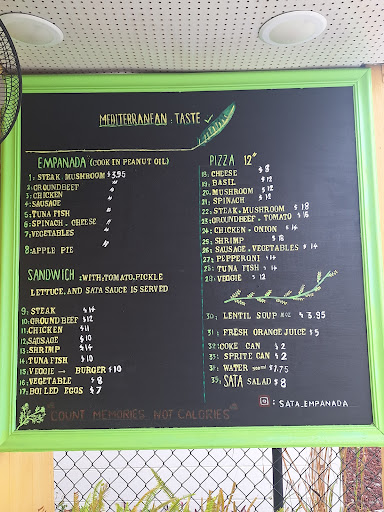 MEDITERRANEAN : TASTE
EMPANADA (COOK IN PEANUT OIL)
1: STEAK MUSHROOM $3.95
2: GROUNDBEEF "
3: CHICKEN "
4: SAUSAGE "
5: TUNA FISH "
6: SPINACH . CHEESE "
7: VEGETABLES "
8: APPLE PIE "
SANDWICH : WITH, TOMATO, PICKLE
LETTUCE, AND SATA SAUCE IS SERVED
9: STEAK $14
10: GROUND BEEF $12
11: CHICKEN $11
12: SAUSAGE $10
13: SHRIMP $14
14: TUNA FISH $10
15: VEGGIE → BURGER $10
16: VEGETABLE $8
17: BOILED EGGS $7
COUNT MEMORIES NOT CALORIES
PIZZA 12"
18: CHEESE $8
19: BASIL $12
20: MUSHROOM $12
21: SPINACH $12
22: STEAK. MUSHROOM $18
23: GROUNDBEEF . TOMATO $16
24: CHICKEN - ONION $14
25: SHRIMP $18
26: SAUSAGE . VEGETABLES $14
27: PEPPERONI $14
28: TUNA FISH $14
29: VEGGIE $12
30: LENTIL SOUP $3.95
31: FRESH ORANGE JUICE $5
32: COKE CAN $2
33: SPRITE CAN $2
32: WATER $1.75
33: SATA SALAD $8
: SATA_EMPANADA